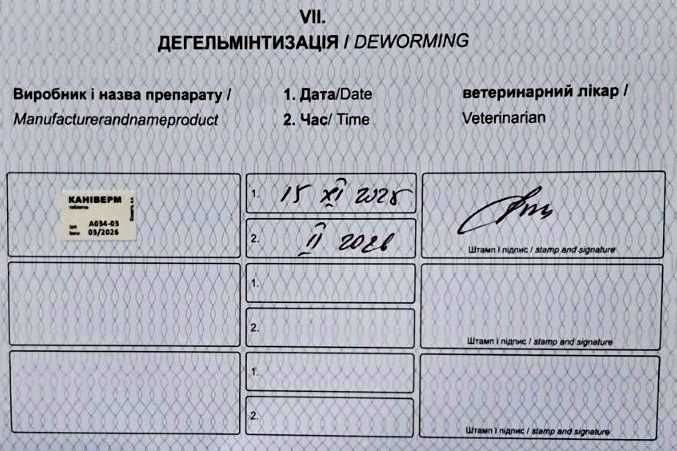 VII.
ДЕГЕЛЬМІНТИЗАЦІЯ / DEWORMING
Виробник і назва препарату /
Manufacturerandnameproduct
1. Дата/Date
2. Час/ Time
ветеринарний лікар /
Veterinarian
КАНІВЕРМ
таблетки
A034-03
03/2026
1. 15 XI 2025
2. II 2026
Штамп і підпис / stamp and signature
1.
2.
Штамп і підпис / stamp and signature
1.
2.
Штамп і підпис / stamp and signature